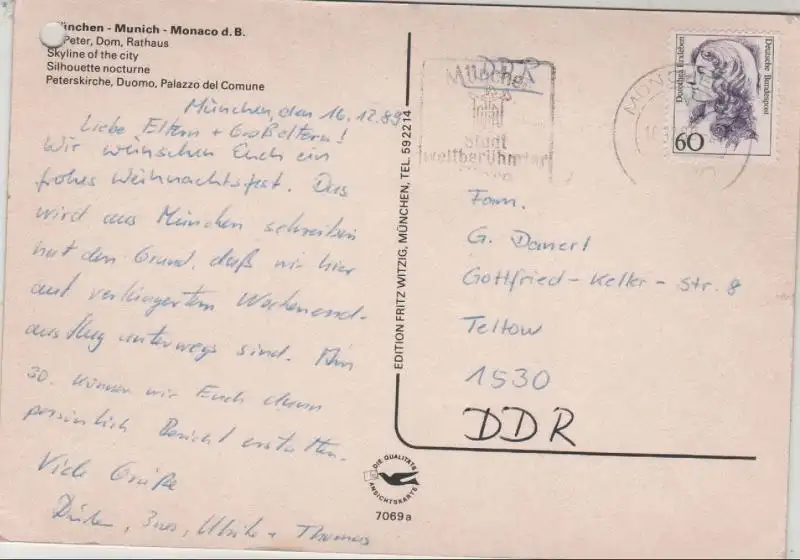 München - Munich - Monaco d. B.
Peter, Dom, Rathaus
Skyline of the city
Silhouette nocturne
Peterskirche, Duomo, Palazzo del Comune
München, den 16.12.89
Liebe Eltern + Großeltern!
Wir wünschen Euch ein
frohes Weihnachtsfest. Das
wird aus München schreiben
hat den Grund, daß wir hier
auf verlängertem Wochenend-
ausflug unterwegs sind. Am
30. können wir Euch dann
persönlich Bericht erstatten.
Viele Grüße
Ines, Ulrike + Thomas
EDITION FRITZ WITZIG, MÜNCHEN, TEL. 59 22 14
DIE QUALITÄTS
ANSICHTSKARTE
7069a
DDR
München
Stadt
weltberühmter
Dorothea Erxleben
Deutsche Bundespost
60
Fam.
G. Danert
Gottfried-Keller-Str. 8
Teltow
1530
DDR